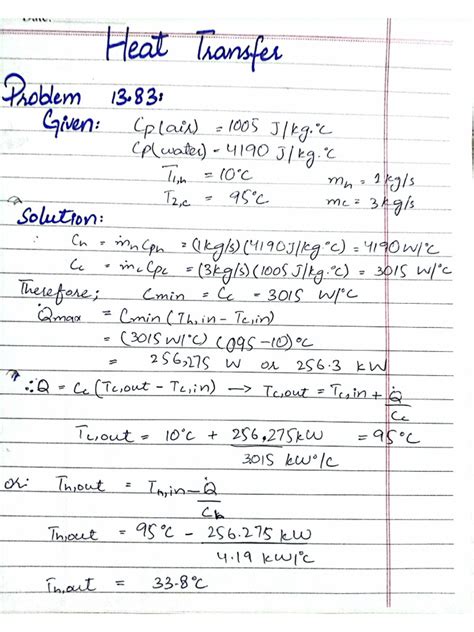 Heat Transfer
Problem 13.83:
Given: Cp(air) = 1005 J/kg.°C
Cp(water) - 4190 J/kg.°C
T1,h = 10°C   mh = 1kg/s
T2,c = 95°C   mc = 3kg/s
Solution:
∴ Ch = ṁh Cph = (1kg/s)(4190J/kg.°C) = 4190W/°C
Cc = ṁc Cpc = (3kg/s)(1005 J/kg.°C) = 3015 W/°C
Therefore; Cmin = Cc - 3015 W/°C
Q̇max = Cmin (Th,in - Tc,in)
= (3015 W/°C) (095-10)°C
= 256,275 W or 256.3 kW
∴ Q̇ = Cc (Tc,out - Tc,in) → Tc,out = Tc,in + Q̇/Cc
Tc,out = 10°C + 256,275kW/3015 kW°/C = 95°C
or: Th,out = Th,in - Q̇/Ch
Th,out = 95°C - 256.275 kW/4.19 kW/°C
Th,out = 33.8°C